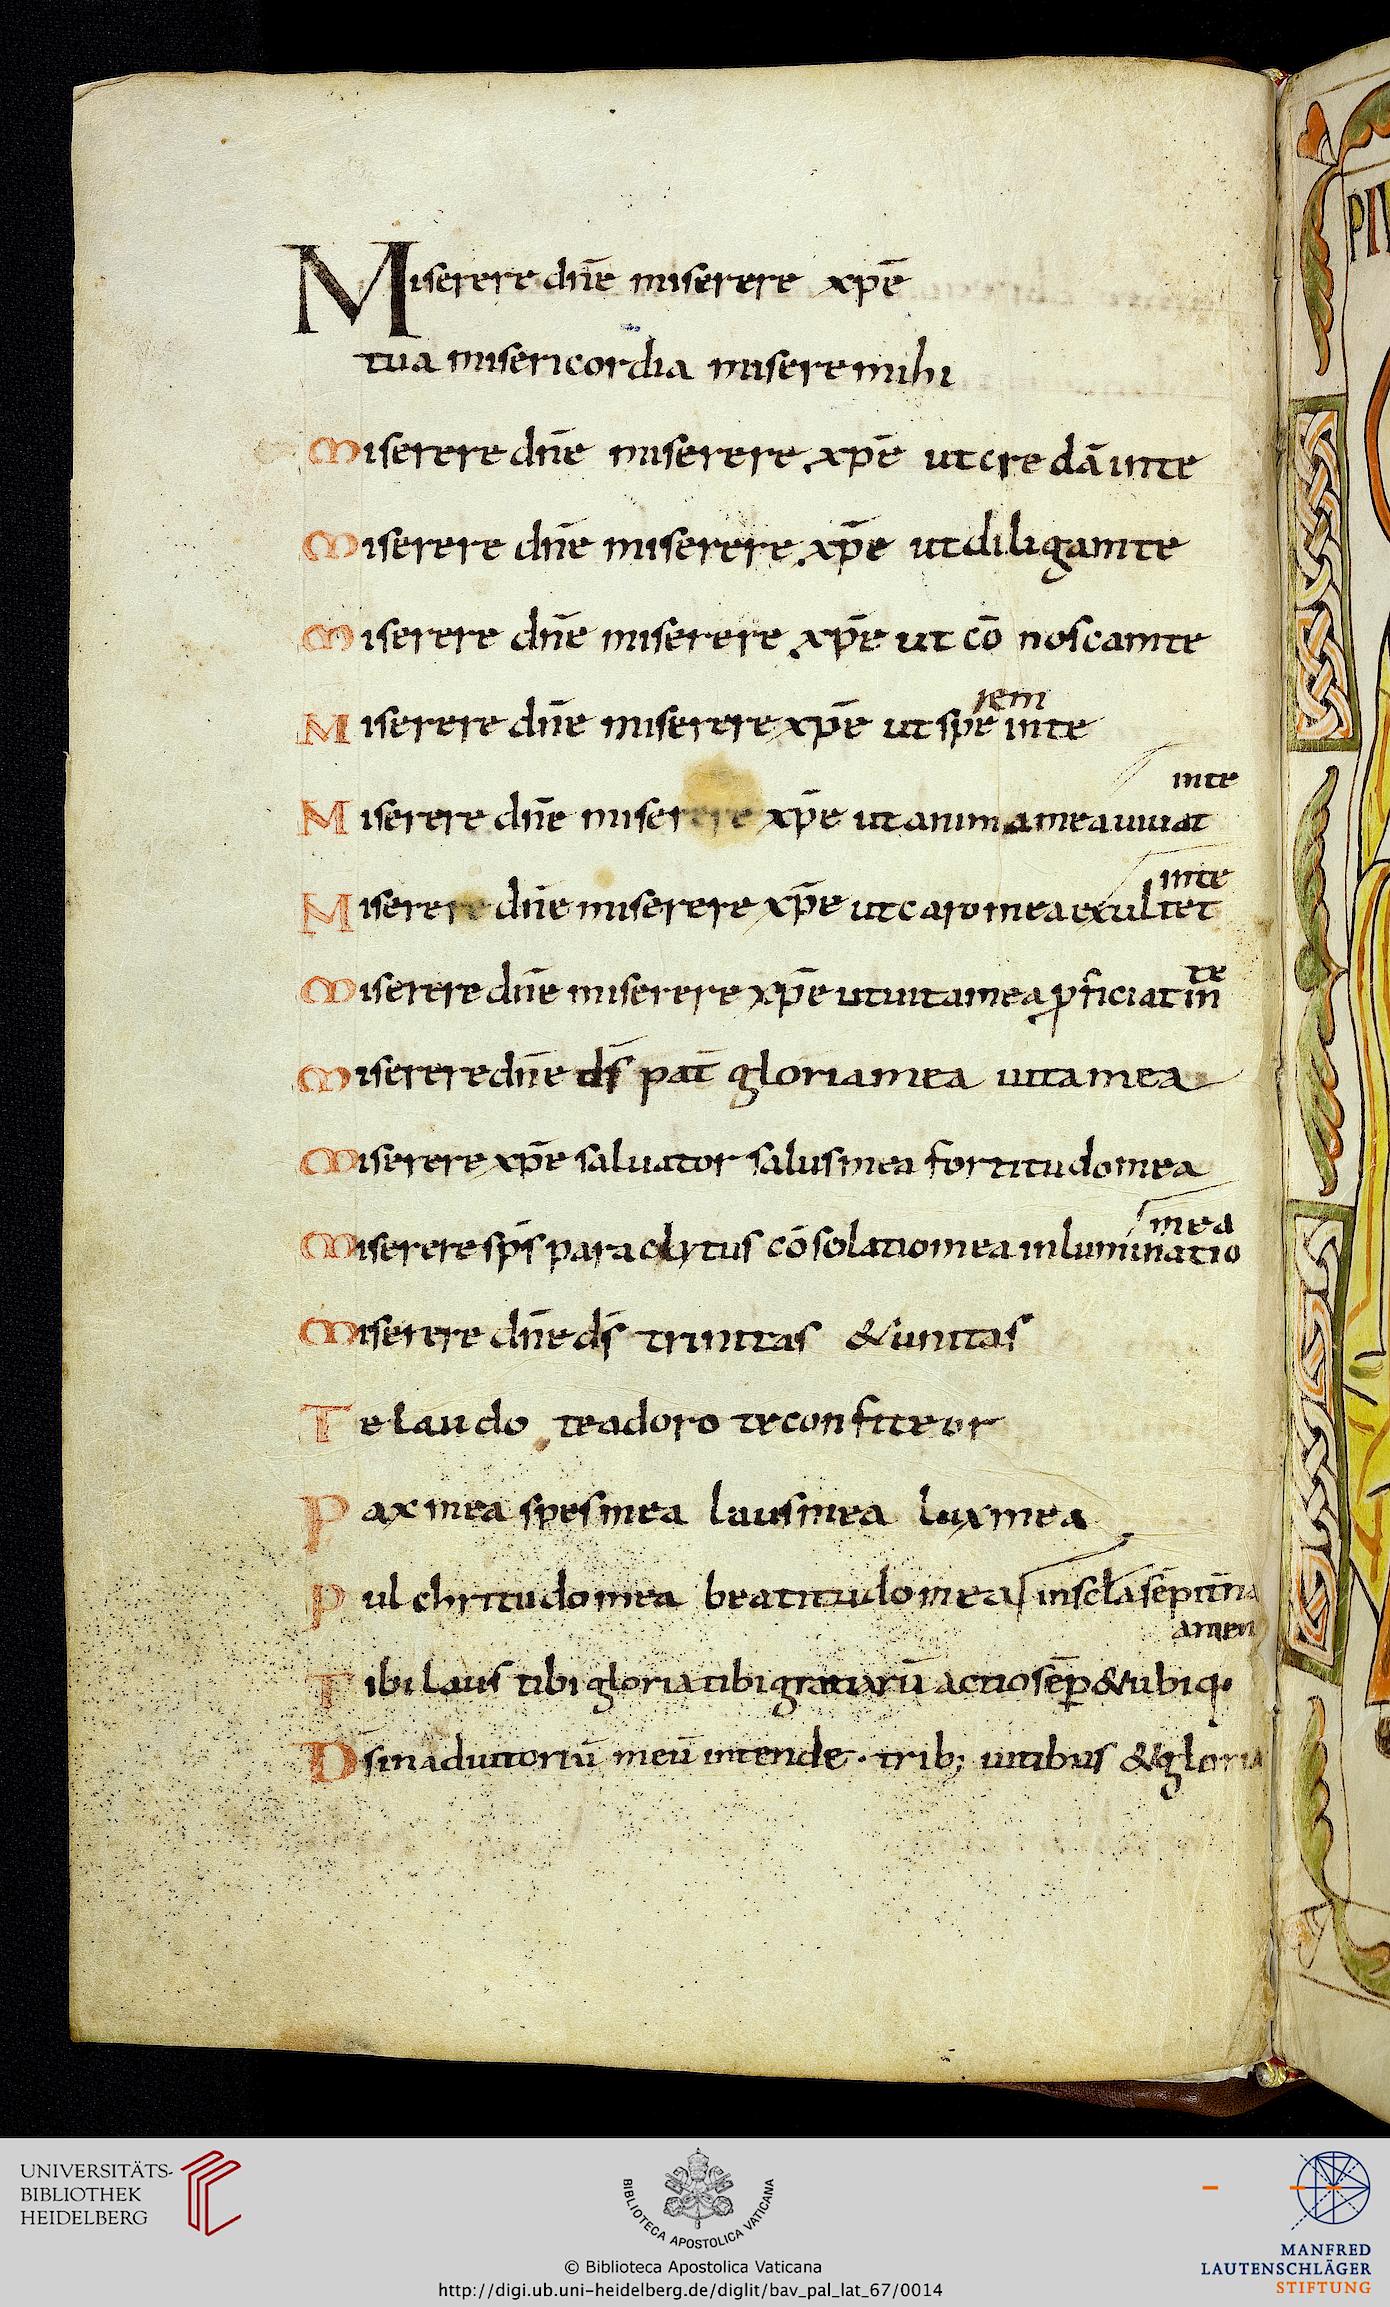 Miserere dñe miserere xpē
tua misericordia miseremihi
Miserere dñe miserere xpē ut credā inte
Miserere dñe miserere xpē ut diligamte
Miserere dñe miserere xpē ut cō noscamte
rem
Miserere dñe miserere xpē ut spē inte
inte
Miserere dñe miserere xpē ut anima mea uiuat
inte
Miserere dñe miserere xpē ut caro mea exultet
te
Miserere dñe miserere xpē ut uita mea ꝓficiat in
Miserere dñe d̄s pat̄ gloria mea uita mea
Miserere xpē saluator salus mea fortitudo mea
mea
Miserere sp̄s paraclytus cōsolatio mea inluminatio
Miserere dñe d̄s trinitas & unitas
Te laudo te adoro te confiteor
Pax mea spes mea laus mea lux mea
Pulchritudo mea beatitudo mea in scl̄a sēpit̄na
amen
Tibi laus tibi gloria tibi gratiarū actio sēꝑ & ubiq·
D̄s in adiutoriū meū intende · trib; uicibus & gloria
PIV
UNIVERSITÄTS-
BIBLIOTHEK
HEIDELBERG
BIBLIOTECA APOSTOLICA VATICANA
© Biblioteca Apostolica Vaticana
http://digi.ub.uni-heidelberg.de/diglit/bav_pal_lat_67/0014
MANFRED
LAUTENSCHLÄGER
STIFTUNG